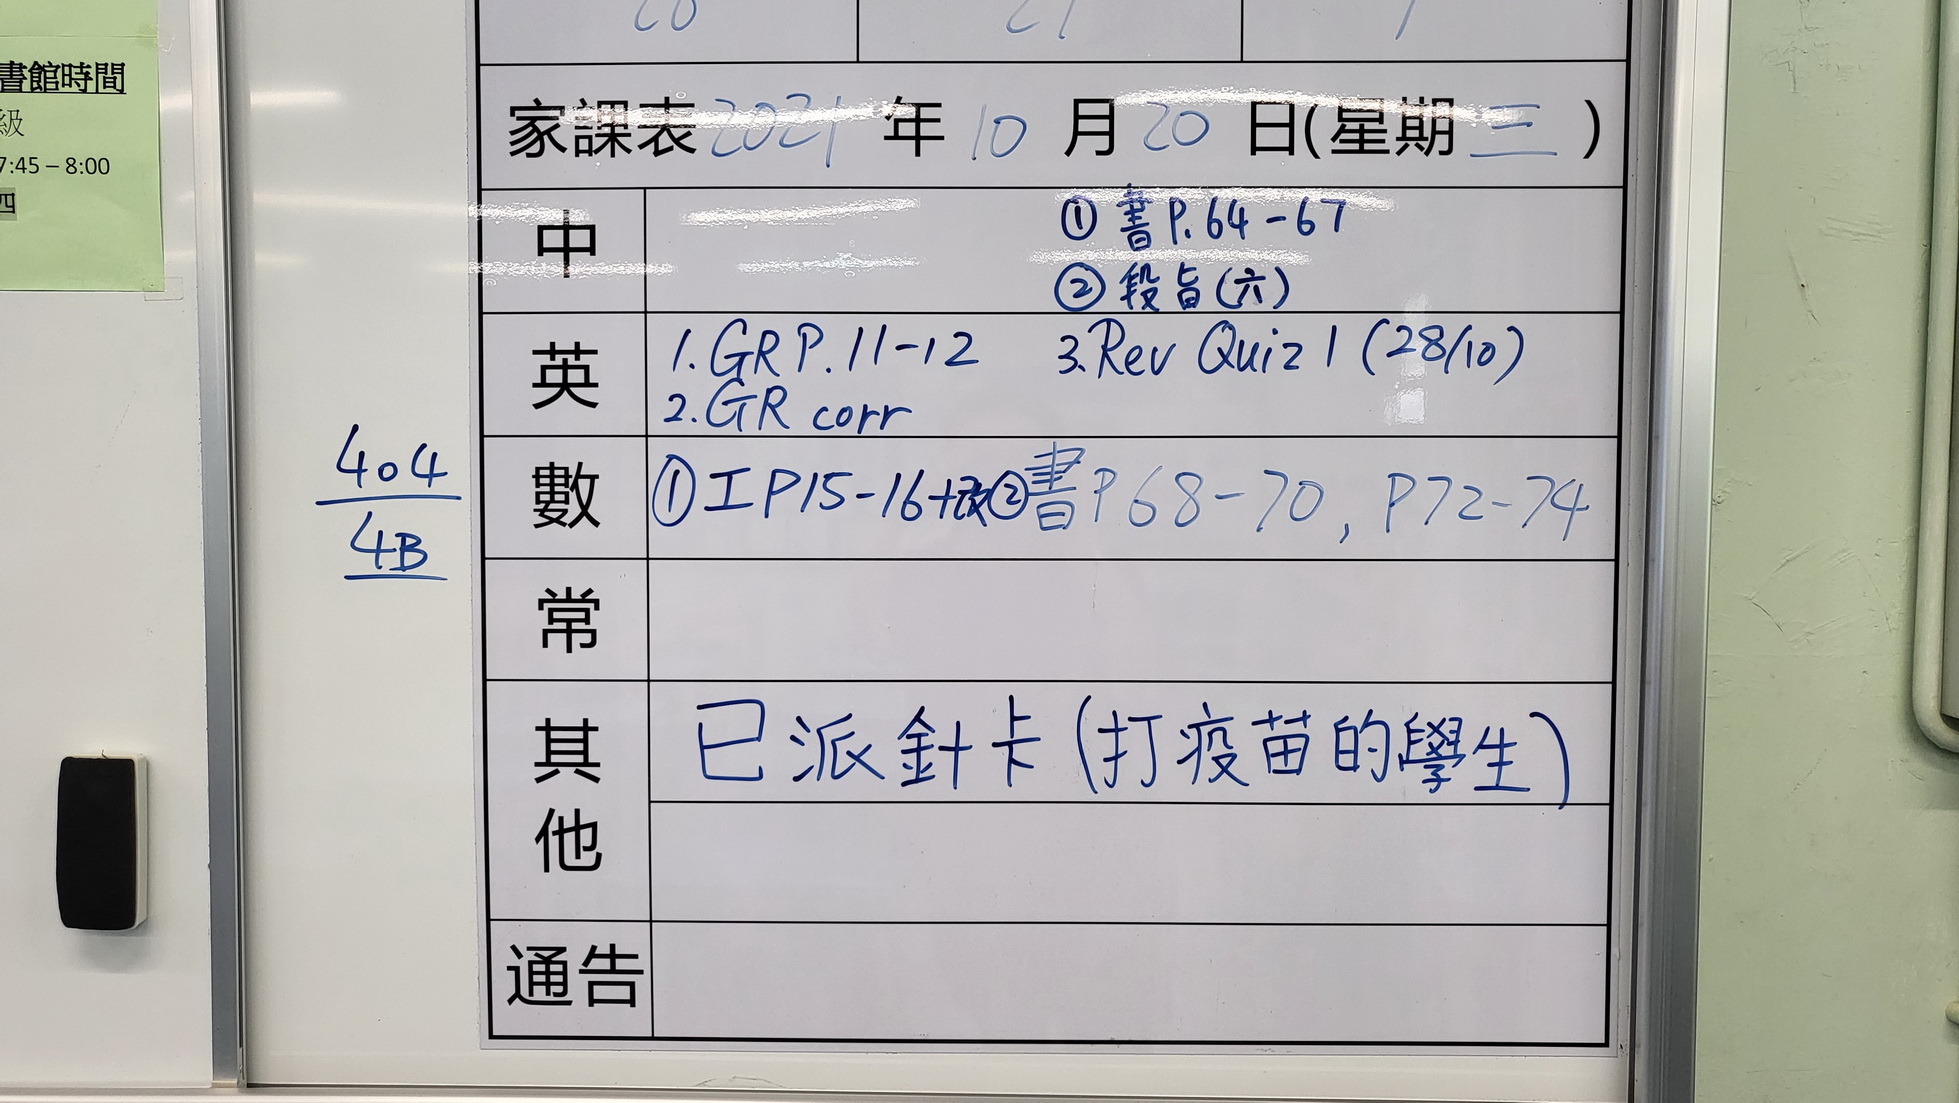 書館時間
級
7:45 – 8:00
四
家課表 2021 年 10 月 20 日(星期 三 )
中
① 書 P. 64 - 67
② 段旨(六)
英
1. GR P. 11-12 3. Rev Quiz 1 (28/10)
2. GR corr
數
① 工 P15-16+改 ② 書 P 68-70, P72-74
404
4B
常
其他
已派針卡(打疫苗的學生)
通告